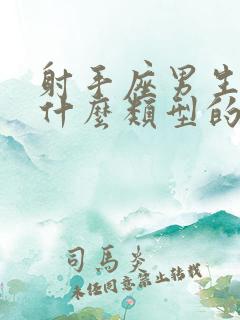 射手座男生
什麼類型的
司馬炎
未经同意禁止转载